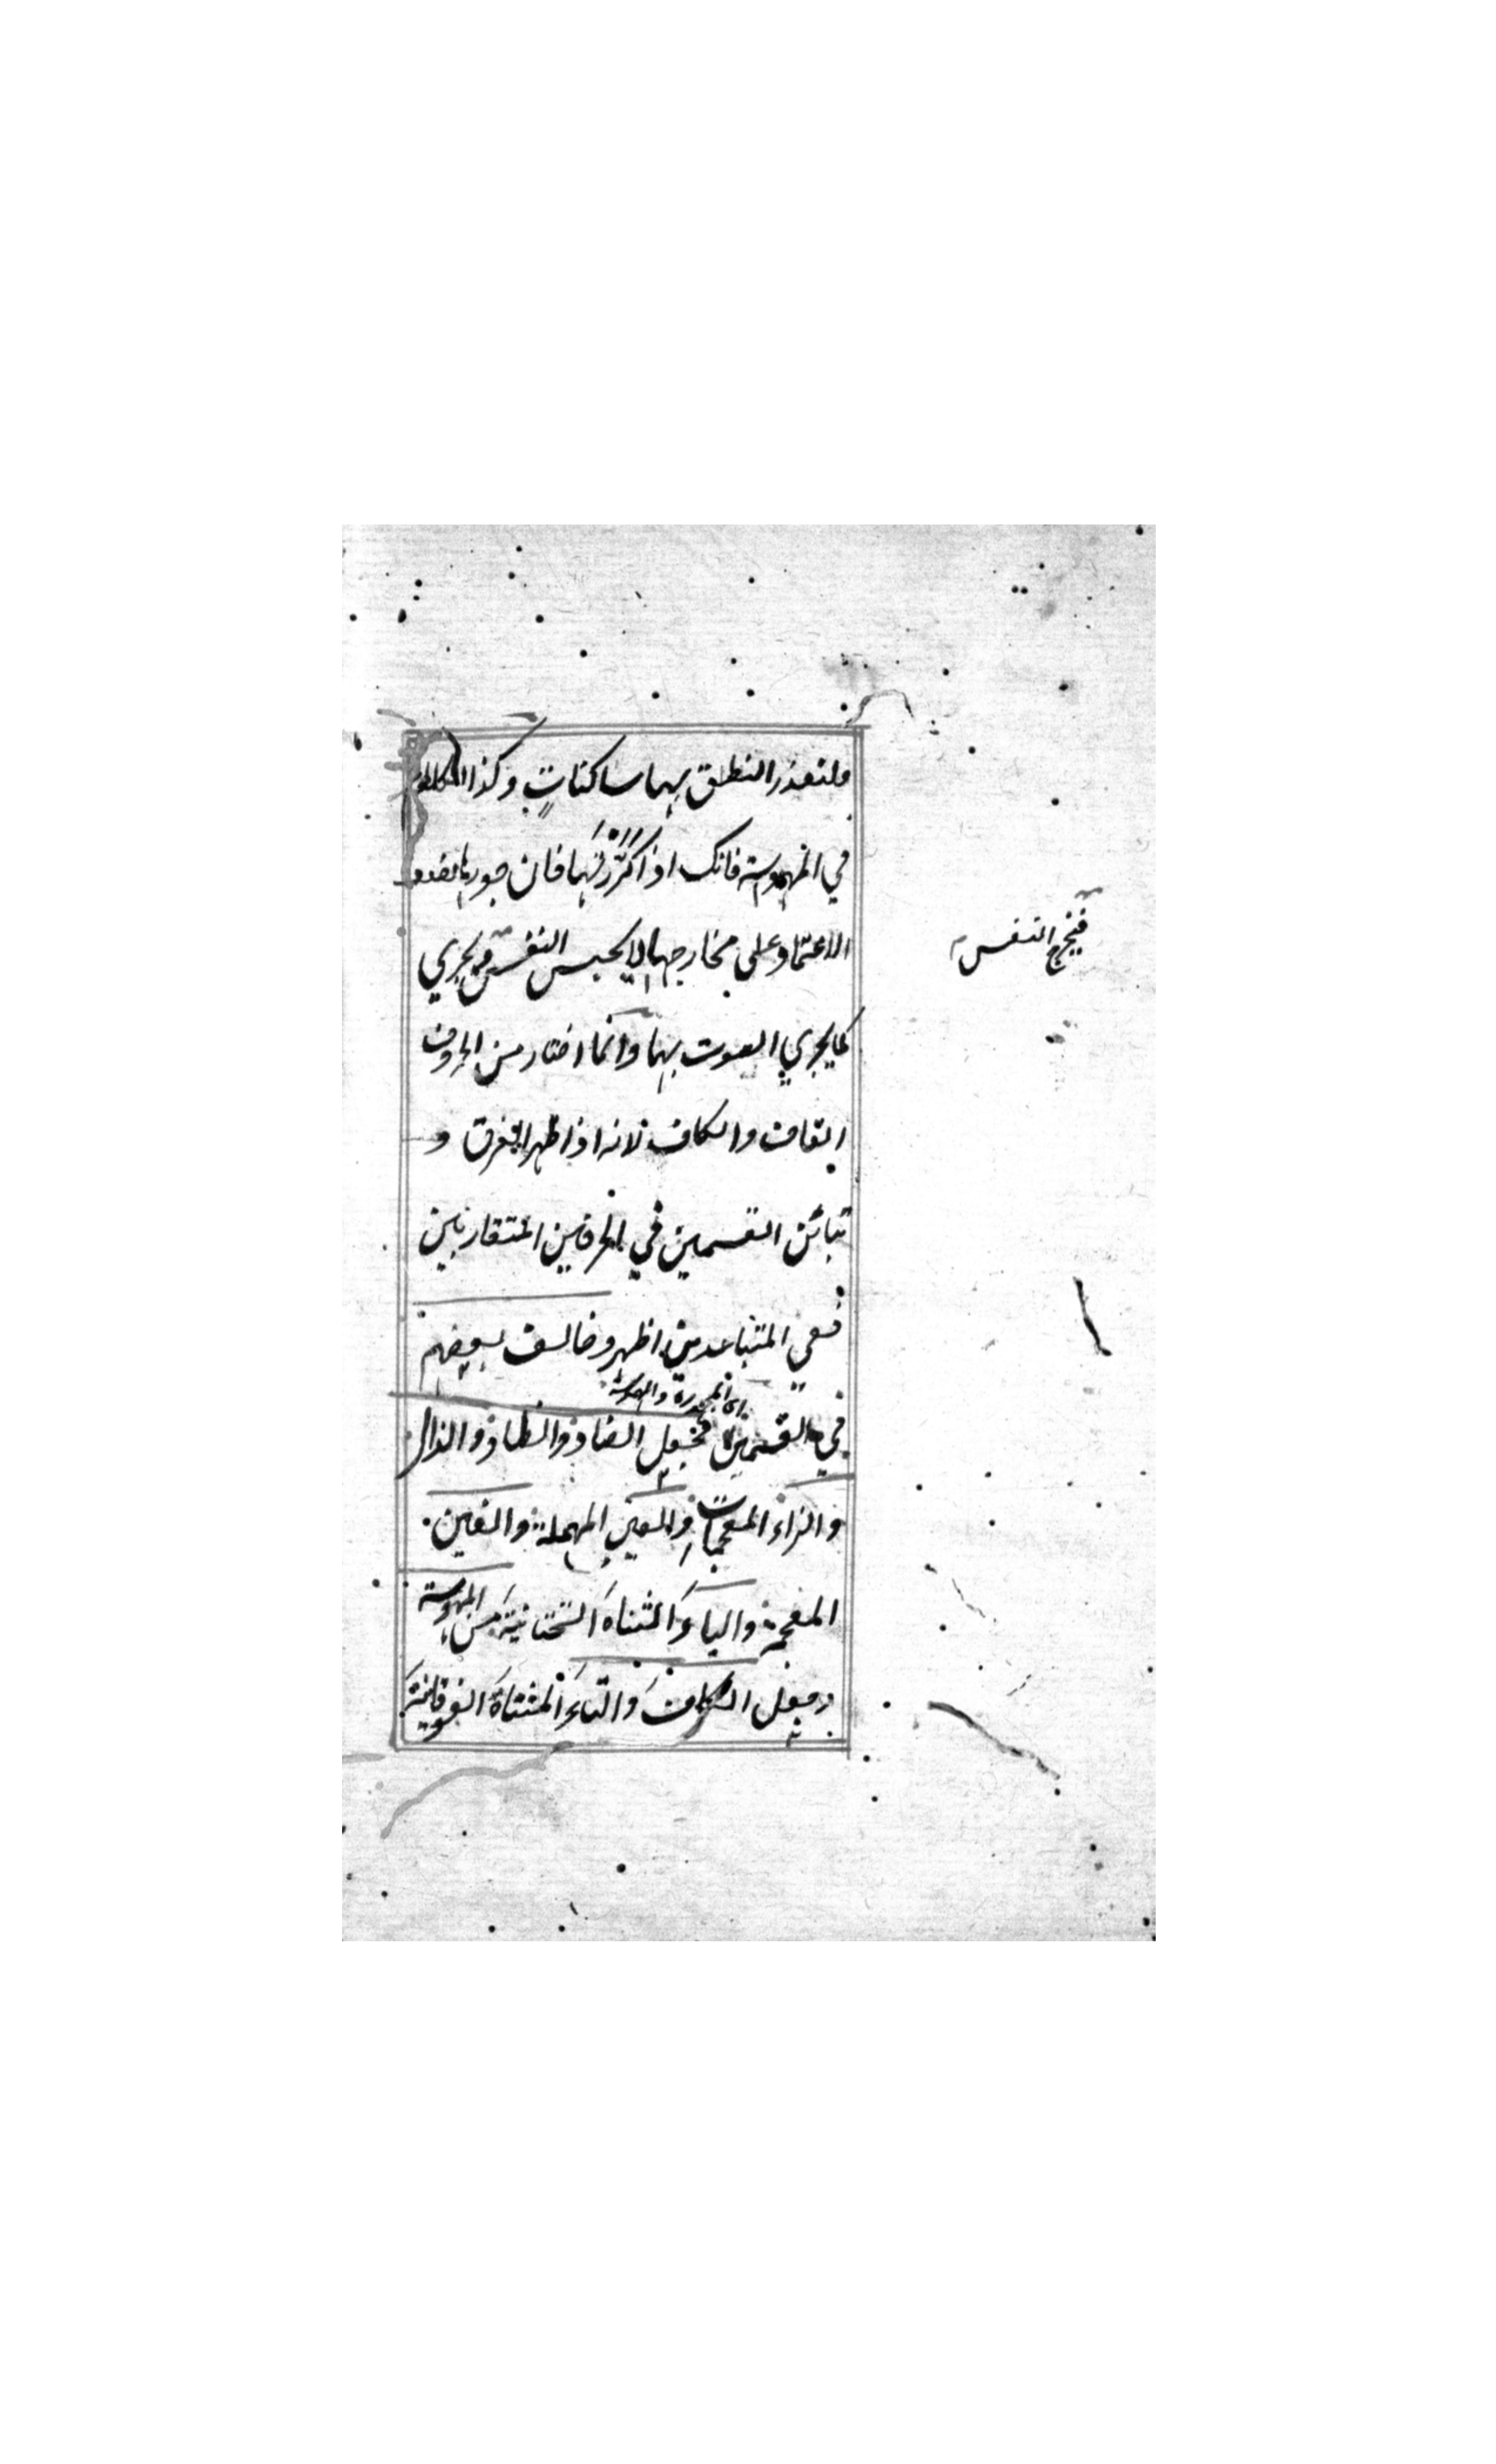 ولتعذر النطق بها ساكنات وكذا الكلام
في المهموسة فانك اذا كررتها فان جوهرها لضعف
الاعتماد على مخارجها لا يحبس النفس فيجري
فيخرج النفس
كما يجري الصوت بها وانما اختار من الحروف
القاف والكاف لانه اذا ظهر الفرق و
تبائن القسمين في الحرفين المتقاربين
ففي المتباعدين اظهر وخالف بعضهم
اى المجهورة والمهموسة
في القسمين فجعل الضاد والظاء والذال
والزاء المعجمات والعين المهملة والغين
المعجمة والياء المثناة التحتانية من المهموسة
وجعل الكاف والتاء المثناة الفوقانية